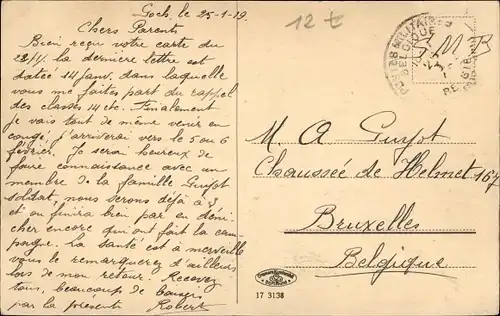 Goch, le 25-1-19.
Chers Parents
Bien reçu votre carte du
22/1. La dernière lettre est
datée 14 janv. dans laquelle
vous me faites part du rappel
des classes 14 etc. Finalement
je vais tout de même venir en
congé, j'arriverai vers le 5 ou 6
février. Je serai heureux de
faire connaissance avec un
membre de la famille Guyot
soldat, nous serons déjà à 3
et on finira bien par en déni-
cher encore qui ont fait la cam-
pagne. La santé est à merveille
vous le remarquerez d'ailleurs
lors de mon retour. Recevez
tous, beaucoup de baisers
par la présente Robert
12 €
POSTES MILITAIRES
BELGIQUE
S M B
M. A Guyot
Chaussée de Helmet 167
Bruxelles
Belgique
17 3138